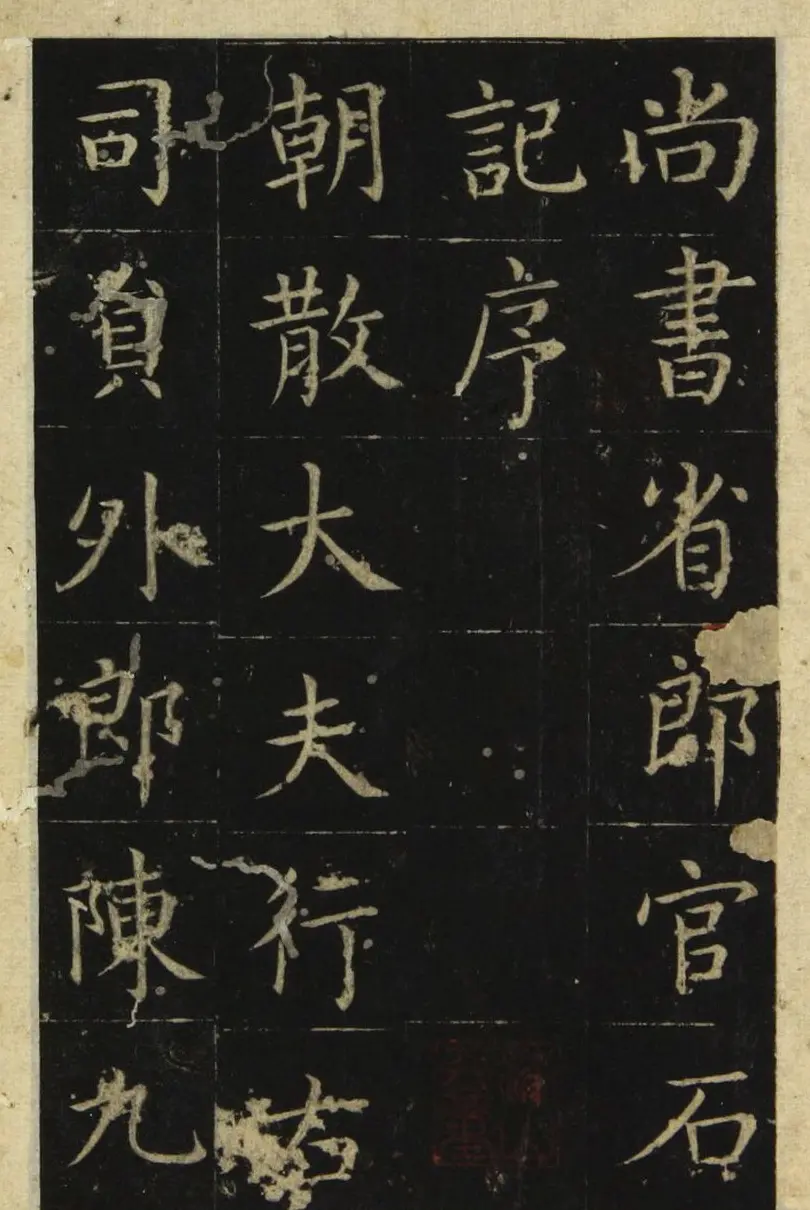 尚書省郎官石
記序
朝散大夫行右
司貟外郎陳九